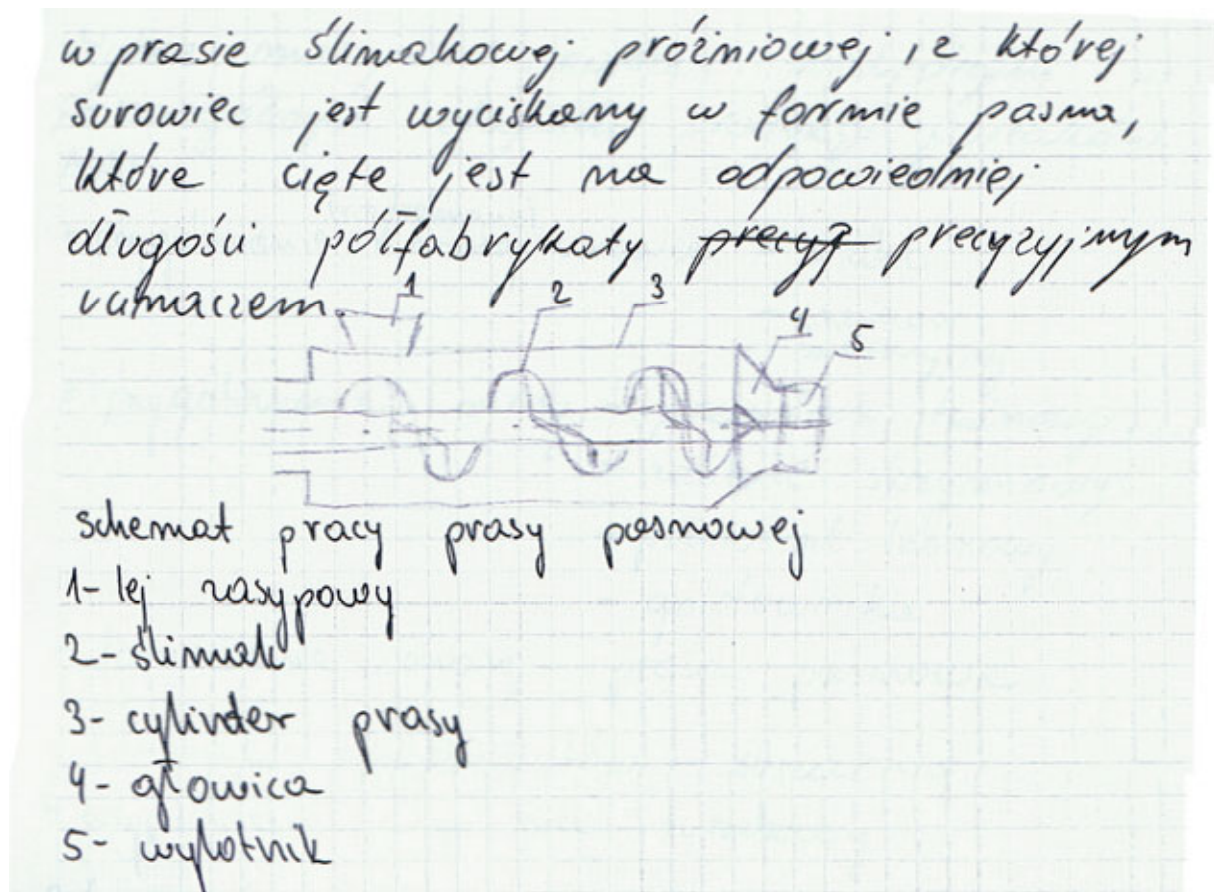 w prasie ślimakowej próżniowej, z której
surowiec jest wyciskany w formie pasma,
które cięte jest na odpowiedniej
długości półfabrykaty precyz precyzyjnym
ucinaczem.
1 2 3 4 5
schemat pracy prasy pasmowej
1- lej zasypowy
2- ślimak
3- cylinder prasy
4- głowica
5- wylotnik